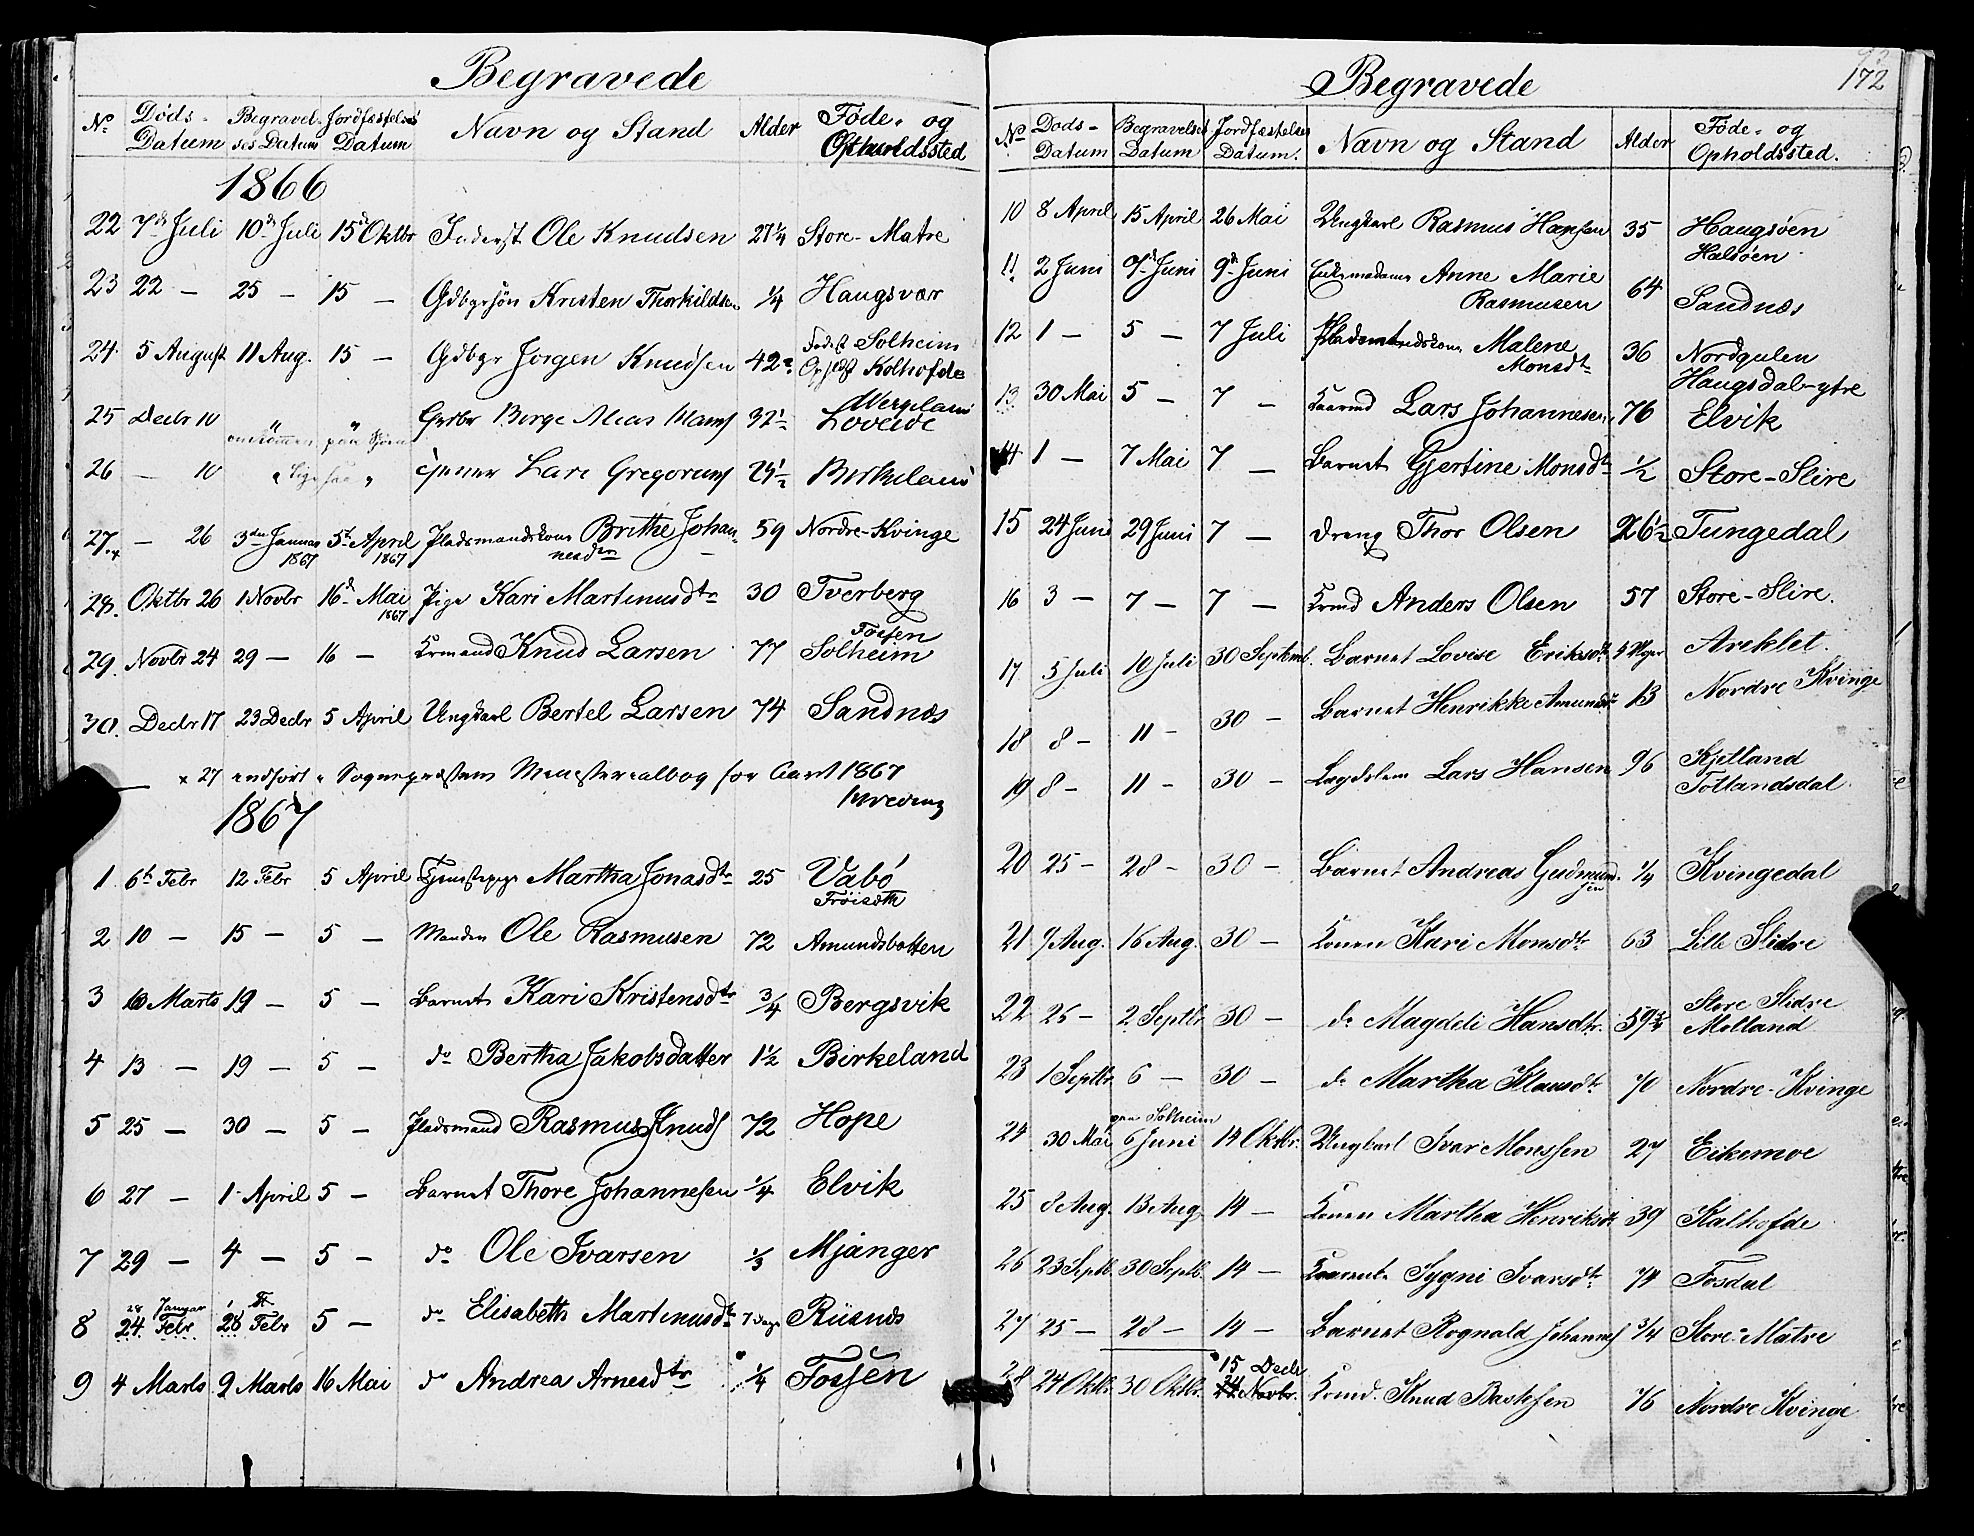 Begravede
No Døds-Datum Begravel-ses Datum Jordfæstelses Datum Navn og Stand Alder Føde- og Opholdssted
1866
22 7de Juli 10de Juli 15de Oktbr Inderst Ole Knudsen 27 1/4 Store-Matre
23 22 — 25 — 15 — Gdbgrsøn Kristen Thorkildsen 1/4 Haugsvær
24 5 August 11 Aug. 15 — Gdbgr Jørgen Knudsen 42 Solheim Kolhofde
25 Decbr 10 " " Birge 32 1/2
26 — 10 Lars 29 1/2 Birkeland
27.x — 26 3die Januar 1867 5te April 1867 Pladsmandskone Brithe Johannesdtr 59 Nordre-Kvinge
28. Oktbr 26 1 Novbr 16de Mai 1867 Pige Kari Martinusdtr 30 Tverberg
29. Novbr 24 29 — 16 — Krmand Knud Larsen 77 Fossen Solheim
30. Decbr 17 23 Decbr 5 April Ungkarl Bertel Larsen 74 Sandnæs
x 27 indført i Sognepræstens Ministerialbog for Aaret 1867
1867
1 6te Febr 12 Febr 5 April Tjenestepige Martha Jonasdtr 25 Vabø Frøiseth
2 10 — 15 — 5 — Manden Ole Rasmusen 72 Amundsbotten
3 13 Marts 19 — 5 — Barnet Kari Kristensdtr 3/4 Bergsvik
4 13 — 19 — 5 — do Bertha Jakobsdatter 1 1/2 Birkeland
5 25 — 30 — 5 — Pladsmand Rasmus Knuds 72 Hope
6 27 — 1 April 5 — Barnet Thore Johannesen 1/4 Elvik
7 29 — 4 — 5 — do Ole Ivarsen 1/3 Mjanger
8 28 Januar 24 Febr 1 28 Febr 5 — do Elisabeth Martinusdtr 7 Dage Riisnæs
9 4 Marts 9 Marts 16 Mai do Andrea Arnesdtr 1/4 Fossen
172
Begravede
No Døds-Datum Begravelses Datum Jordfæstelses Datum. Navn og Stand Alder Føde- og Opholdssted.
10 8 April 15 April 26 Mai Ungkarl Rasmus Hansen 35 Haugsøen Halsøen
11 2 Juni 7de Juni 9de Juni Enkemadame Anne Marie Rasmusen 64 Sandnæs
12 1 — 5 — 7 Juli Pladsmandskone Malene Monsdtr 36 Nordgulen Haugsdal-ytre
13 30 Mai 5 — 7 — Lars Johannesen 76 Elvik
14 1 — 7 Mai 7 — Barnet Gjertine Monsdtr 1/2 Store-Slire
15 24 Juni 29 Juni 7 — Dreng Thor Olsen 26 1/2 Tungedal
16 3 — 7 — 7 — Krmd Anders Olsen 57 Store-Slire.
17 5 Juli 10 Juli 30 Septemb. Barnet Lovise Eriksdtr 5 Uger Areklet.
18 8 — 11 — 30 — Barnet Henrikke Amundsdtr 13 Nordre Kvinge
19 8 — 11 — 30 — Lægdslem Lars Hansen 96 Kjetland Totlandsdal.
20 25 — 28 — 30 — Barnet Andreas Gudmundsen 1/4 Kvingedal
21 9 Aug. 16 Aug. 30 — Konen Kari Monsdtr 63 Lille Slidre
22 25 — 2 Septbr 30 — do Magdeli Hansdtr. 59 3/4 Store Slidre Molland
23 1 Septbr. 6 — 30 — do Martha Klausdtr 70 Nordre-Kvinge
24 30 Mai paa Solheim 6 Juni 14 Oktbr. Ungkarl Ivar Monssen 27 Eikemoe
25 8 Aug. 13 Aug 14 — Konen Martha Henriksdtr 39 Kalhofde
26 23 Septb. 30 Septb. 14 — Sygni Ivarsdtr 74 Fosdal
27 25 — 28 — 14 — Barnet Rognald Johannes 3/4 Store-Matre
28 24 Oktbr. 30 Oktbr. 15 Decbr 24 Novbr. Krmd. Knud 76 Nordre Kvinge